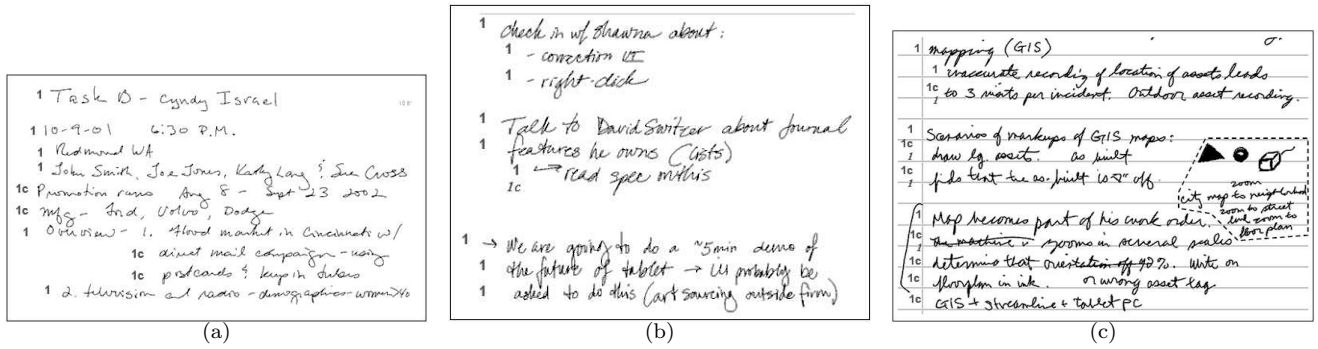 1 Task B - Cyndy Israel
1 10-9-01 6:30 P.M.
1 Redmond WA
1 John Smith, Joe Jones, Kathy Lang & Sue Cross
1c Promotion runs Aug 8 - Sept 23 2002
1c Mfg - Ford, Volvo, Dodge
1 Overview - 1. flood market in Cincinnati w/
1c direct mail campaign - using
1c postcards & keys in tubes
1 2. television and radio - demographics - women >40
(a)
1 Check in w/ Shawna about:
1 - correction UI
1 - right-click
1 Talk to David Switzer about Journal
1 features he owns (lists)
1 → read spec on this
1c
1 → We are going to do a ~5min demo of
1 the future of tablet → ill probably be
1 asked to do this (art sourcing outside firm)
(b)
1 mapping (GIS)
1 inaccurate recording of location of assets leads
1c to 3 visits per incident. Outdoor asset recording.
1
1c Scenarios of markups of GIS maps:
1c draw lg assets. as built
1
1c finds that the as-built is off.
1
zoom
city map to neighborhood
zoom to street
level zoom to
floor plan
1 Map becomes part of his work order.
1c the machine zooms in several scales
1c determine that orientation off 42%. Write on
1c floorplan in ink. or wrong asset tag
1c GIS + streamline + tablet PC
(c)